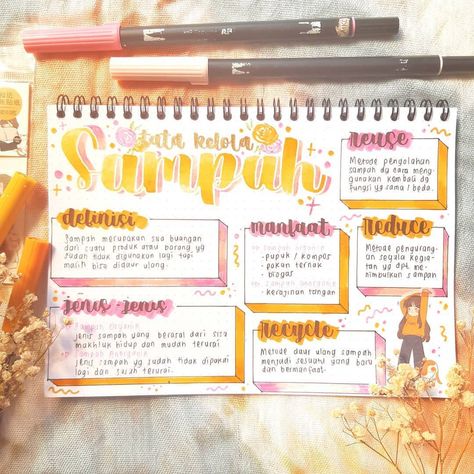 tata kelola
Sampah
definisi
Sampah merupakan sisa buangan
dari suatu produk atau barang yg
sudah tidak digunakan lagi tapi
masih bisa didaur ulang.
jenis-jenis
Sampah Organik
jenis sampah yang berasal dari sisa
makhluk hidup dan mudah terurai
Sampah Anorganik
jenis sampah yg sudah tidak dipakai
lagi dan sulit terurai.
manfaat
Sampah organik
- pupuk / kompos
- pakan ternak
- biogas
Sampah anorganik
- kerajinan tangan
reuse
Metode pengolahan
sampah dg cara meng-
gunakan kembali dg
fungsi yg sama / beda.
reduce
Metode pengurang-
an segala kegia-
tan yg dpt me-
nimbulkan sampah
recycle
Metode daur ulang sampah
menjadi sesuatu yang baru
dan bermanfaat.